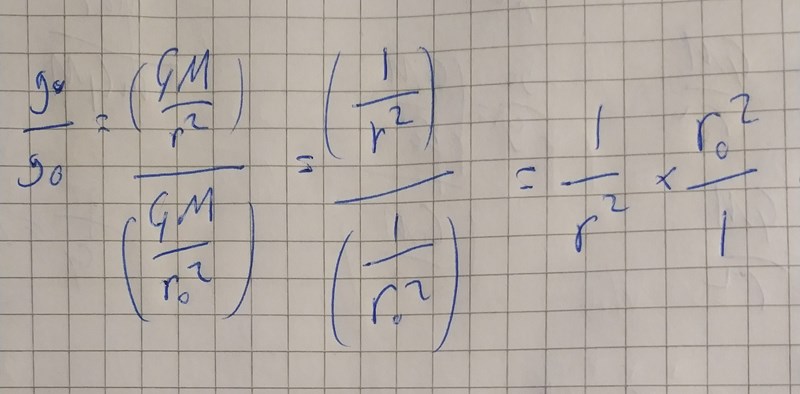 g/g₀ = (GM/r²)/(GM/r₀²) = (1/r²)/(1/r₀²) = 1/r² × r₀²/1